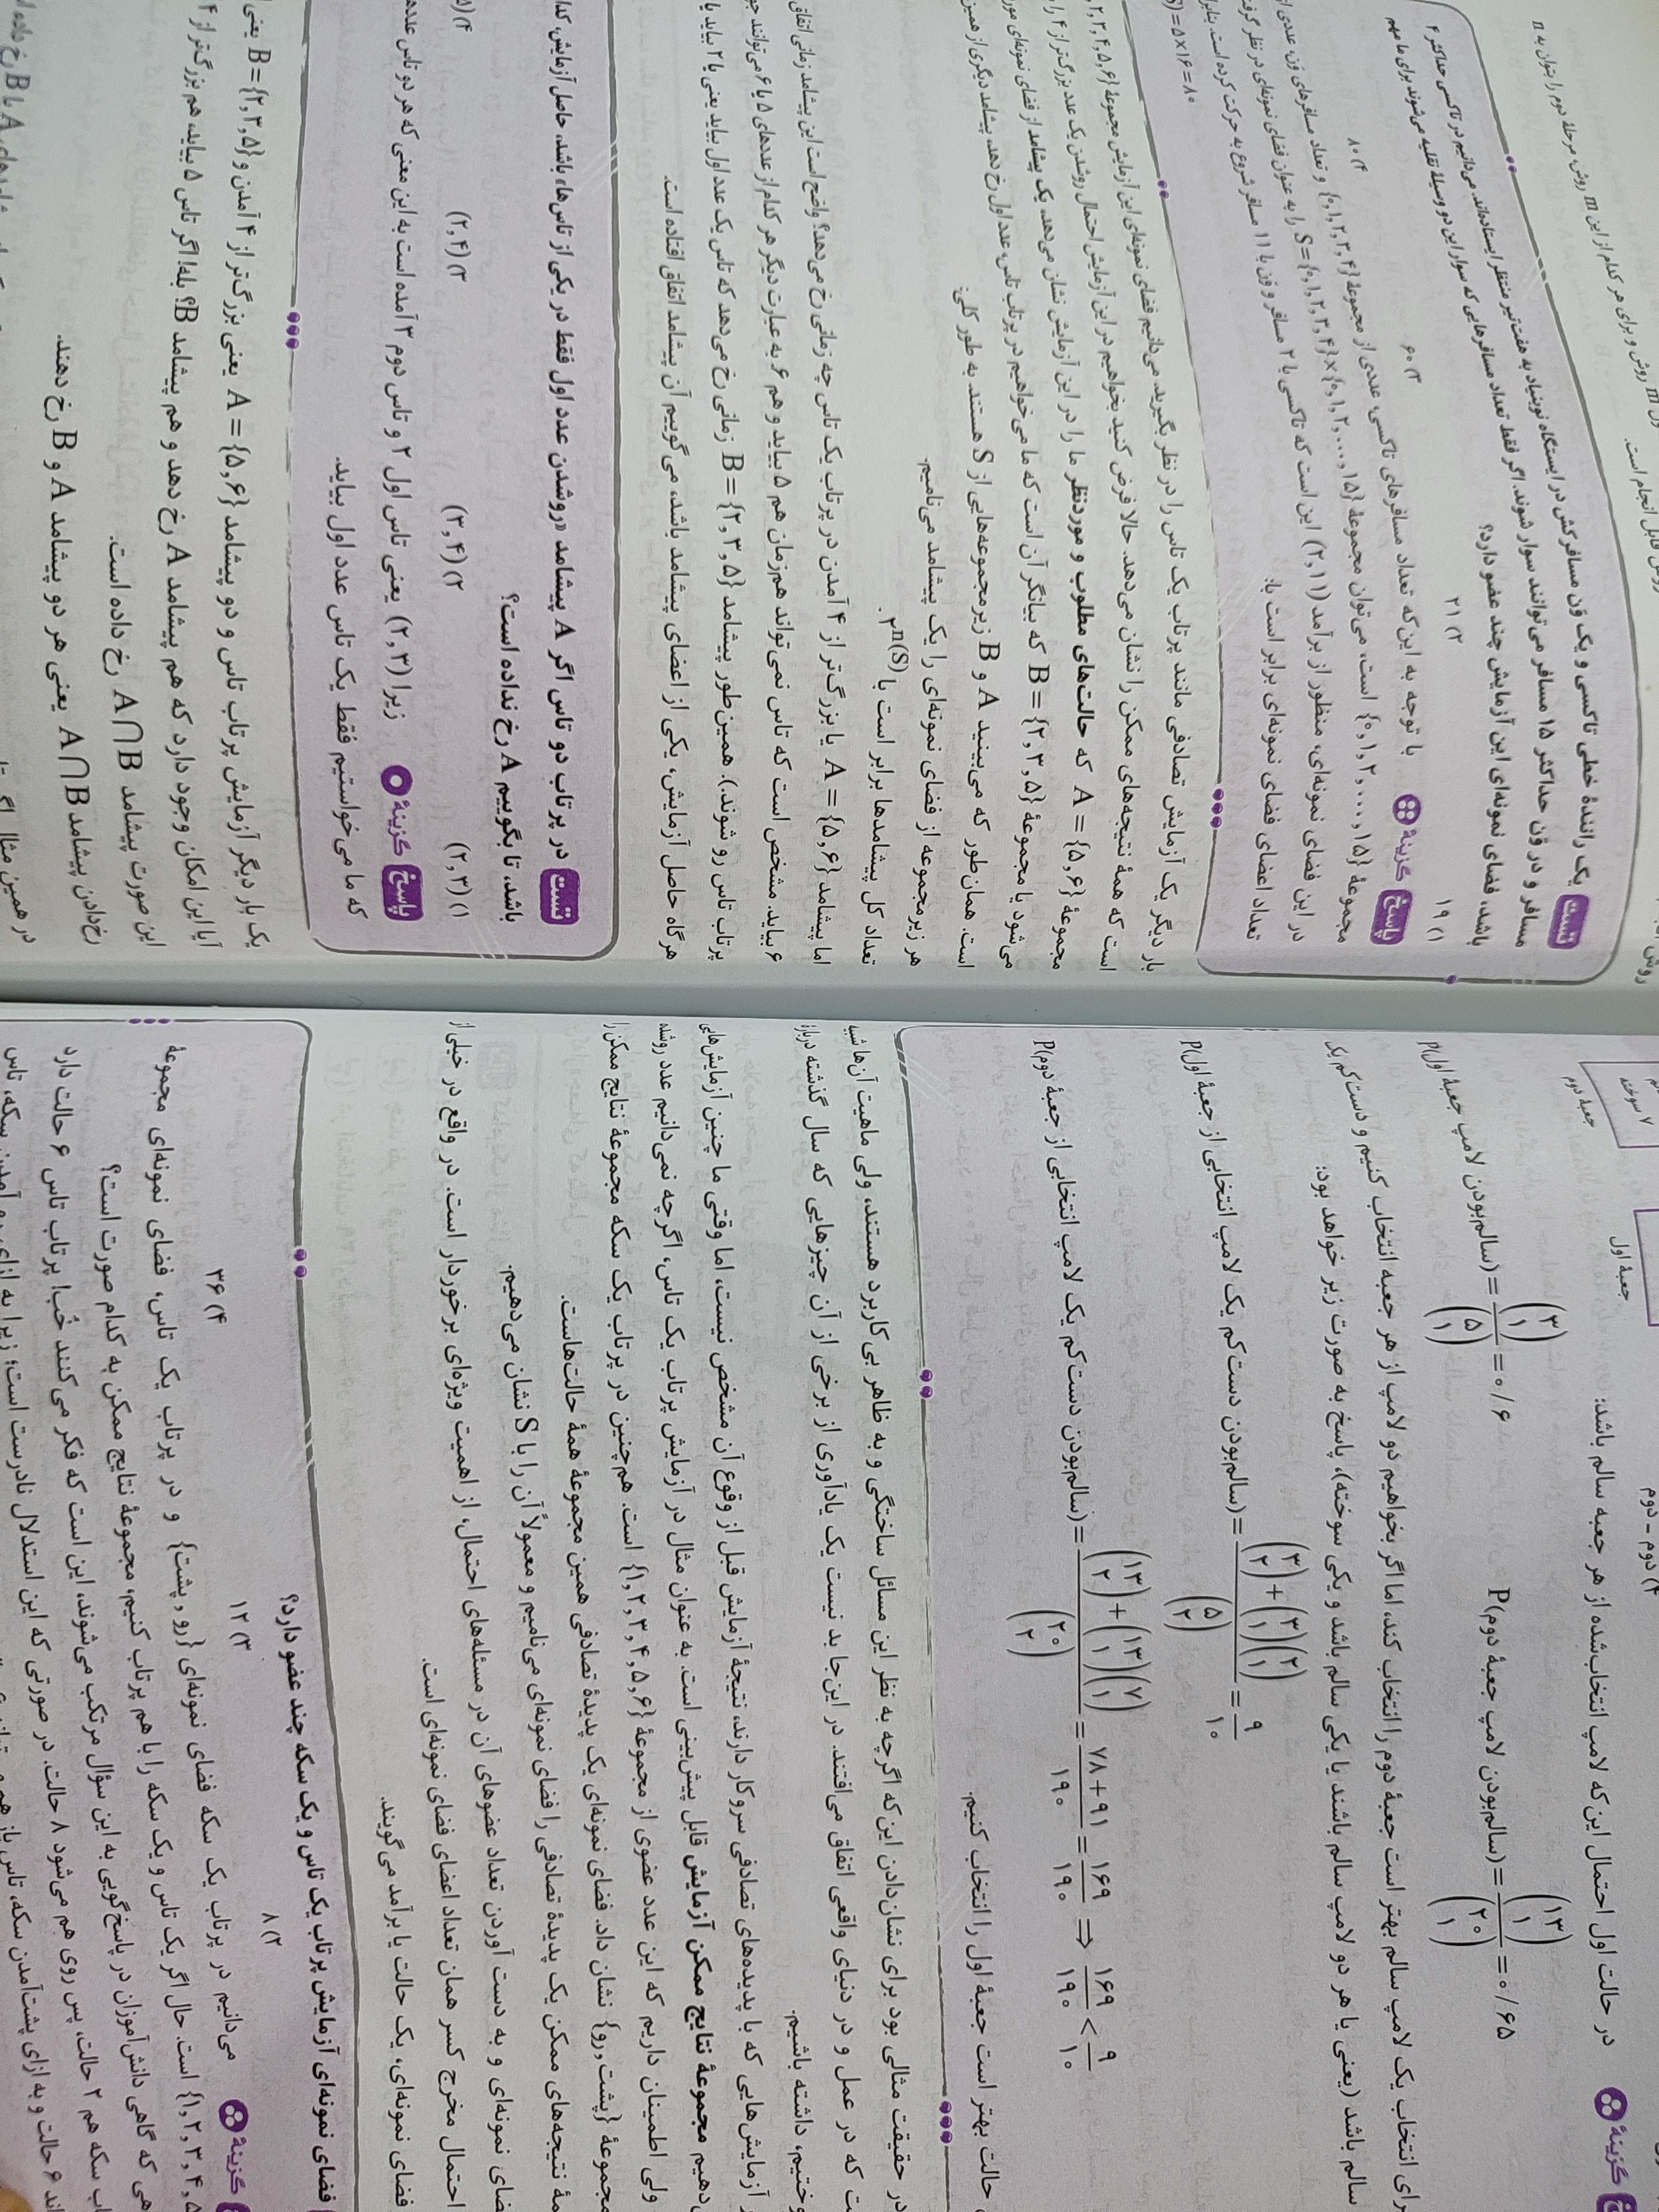 روش قابل انجام است.
تست یک رانندهٔ خطی تاکسی و یک ون مسافرکش در ایستگاه نوبنیاد به هفت‌تیر منتظر ایستاده‌اند. می‌دانیم در تاکسی حداکثر ۴
مسافر و در ون حداکثر ۱۵ مسافر می‌توانند سوار شوند. اگر فقط تعداد مسافرهایی که سوار این دو وسیلهٔ نقلیه می‌شوند برای ما مهم
باشد، فضای نمونه‌ای این آزمایش چند عضو دارد؟
۱) ۱۹
۲) ۲۱
۳) ۶۰
۴) ۸۰
پاسخ گزینهٔ با توجه به این‌که تعداد مسافرهای تاکسی، عددی از مجموعهٔ {۰,۱,۲,۳,۴} و تعداد مسافرهای ون، عددی از
مجموعهٔ {۰,۱,۲,...,۱۵} است، می‌توان مجموعهٔ S={۰,۱,۲,۳,۴}×{۰,۱,۲,...,۱۵} را به عنوان فضای نمونه‌ای در نظر گرفت.
در این فضای نمونه‌ای، منظور از برآمد (۲,۱۱) این است که تاکسی با ۲ مسافر و ون با ۱۱ مسافر شروع به حرکت کرده است. بنابراین
تعداد اعضای فضای نمونه‌ای برابر است با:
=۵×۱۶=۸۰
بار دیگر یک آزمایش تصادفی مانند پرتاب یک تاس را در نظر بگیرید. می‌دانیم فضای نمونه‌ای این آزمایش مجموعهٔ
است که همهٔ نتیجه‌های ممکن را نشان می‌دهد. حالا فرض کنید بخواهیم در این آزمایش احتمال روشدن یک عدد بزرگ‌تر از ۴ را
مجموعهٔ A={۵,۶} که حالت‌های مطلوب و موردنظر ما را در این آزمایش نشان می‌دهد، یک پیشامد از فضای نمونه‌ای
می‌شود یا مجموعهٔ B={۲,۳,۵} که بیانگر آن است که ما می‌خواهیم در پرتاب تاس، عدد اول رخ دهد، پیشامد دیگری از همین
است. همان‌طور که می‌بینید A و B زیرمجموعه‌هایی از S هستند. به طور کلی:
هر زیرمجموعه از فضای نمونه‌ای را یک پیشامد می‌نامیم.
تعداد کل پیشامدها برابر است با ۲^n(S).
اما پیشامد A={۵,۶} یا بزرگ‌تر از ۴ آمدن در پرتاب یک تاس چه زمانی رخ می‌دهد؟ واضح است این پیشامد زمانی اتفاق
۶ بیاید. مشخص است که تاس نمی‌تواند هم‌زمان هم ۵ بیاید و هم ۶ به عبارت دیگر هر کدام از عددهای ۵ یا ۶ می‌توانند
پرتاب تاس رو شوند.). همین‌طور پیشامد B={۲,۳,۵} زمانی رخ می‌دهد که تاس یک عدد اول بیاید یعنی یا ۲ بیاید یا
هرگاه حاصل آزمایش، یکی از اعضای پیشامد باشد، می‌گوییم آن پیشامد اتفاق افتاده است.
تست در پرتاب دو تاس اگر A پیشامد «روشدن عدد اول فقط در یکی از تاس‌ها» باشد، حاصل آزمایش، کدا
باشد، تا بگوییم A رخ نداده است؟
۱) (۲,۳)
۲) (۳,۴)
۳) (۲,۴)
پاسخ گزینهٔ زیرا (۲,۳) یعنی تاس اول ۲ و تاس دوم ۳ آمده است به این معنی که هر دو تاس عدد
که ما می‌خواستیم فقط یک تاس عدد اول بیاید.
یک بار دیگر آزمایش پرتاب تاس و دو پیشامد A={۵,۶} یعنی بزرگ‌تر از ۴ آمدن و B={۲,۳,۵} یعنی
آیا این امکان وجود دارد که هم پیشامد A رخ دهد و هم پیشامد B؟ بله! اگر تاس ۵ بیاید، هم بزرگ‌تر از ۴
این صورت پیشامد A∩B رخ داده است.
رخ‌دادن پیشامد A∩B یعنی هر دو پیشامد A و B رخ دهند.
۴) دوم - دوم
گزینهٔ در حالت اول احتمال این‌که لامپ انتخاب‌شده از هر جعبه سالم باشد:
۷ سوخته
جعبهٔ دوم
جعبهٔ اول
P(سالم‌بودن لامپ جعبهٔ دوم)=(۱۳ ۱)/(۲۰ ۱)=۰/۶۵
P(سالم‌بودن لامپ جعبهٔ اول)=(۳ ۱)/(۵ ۱)=۰/۶
برای انتخاب یک لامپ سالم بهتر است جعبهٔ دوم را انتخاب کند، اما اگر بخواهیم دو لامپ از هر جعبه انتخاب کنیم و دست‌کم یک
سالم باشد (یعنی یا هر دو لامپ سالم باشند یا یکی سالم باشد و یکی سوخته)، پاسخ به صورت زیر خواهد بود:
P(سالم‌بودن دست‌کم یک لامپ انتخابی از جعبهٔ اول)=((۳ ۲)+(۳ ۱)(۲ ۱))/(۵ ۲)=۹/۱۰
P(سالم‌بودن دست‌کم یک لامپ انتخابی از جعبهٔ دوم)=((۱۳ ۲)+(۱۳ ۱)(۷ ۱))/(۲۰ ۲)=(۷۸+۹۱)/۱۹۰=۱۶۹/۱۹۰ ⇒ ۱۶۹/۱۹۰<۹/۱۰
حالت بهتر است جعبهٔ اول را انتخاب کنیم.
در حقیقت مثالی بود برای نشان‌دادن این‌که اگرچه به نظر این مسائل ساختگی و به ظاهر بی‌کاربرد هستند، ولی ماهیت آن‌ها شبیه
ت که در عمل و در دنیای واقعی اتفاق می‌افتند. در این‌جا بد نیست یک یادآوری از برخی از آن چیزهایی که سال گذشته دربارهٔ
وختیم، داشته باشیم.
آزمایش‌هایی که با پدیده‌های تصادفی سروکار دارند، نتیجهٔ آزمایش قبل از وقوع آن مشخص نیست، اما وقتی ما چنین آزمایش‌هایی
دهیم مجموعهٔ نتایج ممکن آزمایش قابل پیش‌بینی است. به عنوان مثال در آزمایش پرتاب یک تاس، اگرچه نمی‌دانیم عدد روشده
ولی اطمینان داریم که این عدد عضوی از مجموعهٔ {۱,۲,۳,۴,۵,۶} است. هم‌چنین در پرتاب یک سکه مجموعهٔ نتایج ممکن را
مجموعهٔ {پشت,رو} نشان داد. فضای نمونه‌ای یک پدیدهٔ تصادفی همین مجموعهٔ همهٔ حالت‌هاست.
مهٔ نتیجه‌های ممکن یک پدیدهٔ تصادفی را فضای نمونه‌ای می‌نامیم و معمولاً آن را با S نشان می‌دهیم.
ضای نمونه‌ای و به دست آوردن تعداد عضوهای آن در مسئله‌های احتمال، از اهمیت ویژه‌ای برخوردار است. در واقع در خیلی از
احتمال مخرج کسر همان تعداد اعضای فضای نمونه‌ای است.
فضای نمونه‌ای، یک حالت یا برآمد می‌گویند.
فضای نمونه‌ای آزمایش پرتاب یک تاس و یک سکه چند عضو دارد؟
۲) ۸
۳) ۱۲
۴) ۳۶
گزینهٔ می‌دانیم در پرتاب یک سکه فضای نمونه‌ای {رو,پشت} و در پرتاب یک تاس، فضای نمونه‌ای مجموعهٔ
{۱,۲,۳,۴,۵ است. حال اگر یک تاس و یک سکه را با هم پرتاب کنیم، مجموعهٔ نتایج ممکن به کدام صورت است؟
هی که گاهی دانش‌آموزان در پاسخ‌گویی به این سؤال مرتکب می‌شوند، این است که فکر می‌کنند خُب! پرتاب تاس ۶ حالت دارد
اب سکه هم ۲ حالت، پس روی هم می‌شود ۸ حالت. در صورتی که این استدلال نادرست است؛ زیرا به ازای رو آمدن سکه، تاس